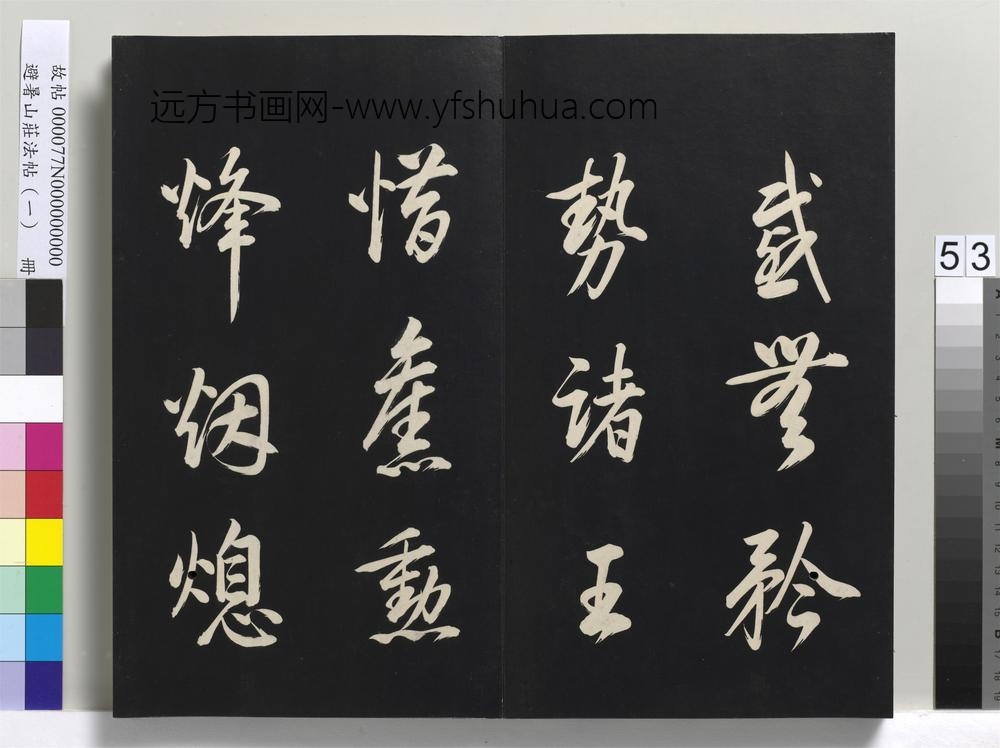 故帖 000077N000000000
避暑山莊法帖（一） 冊
远方书画网-www.yfshuhua.com
盛無矜
勢諸王
惜舊勳
烽烟熄
53